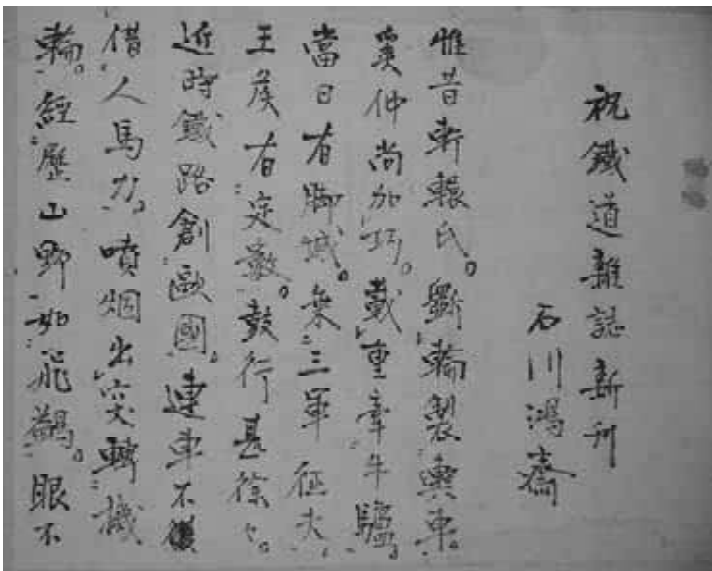 祝鐵道雜誌新刊
石川鴻齋
惟昔軒轅氏。斵輪製輿車。
奚仲尚加巧。載重牽牛驢。
當日有脚城。乘三軍征夫
王侯有定數。鼓行甚徐々。
近時鐵路創歐國。連車不
借人馬力。噴烟出突轉機
輪。經歷山野如飛。眼不